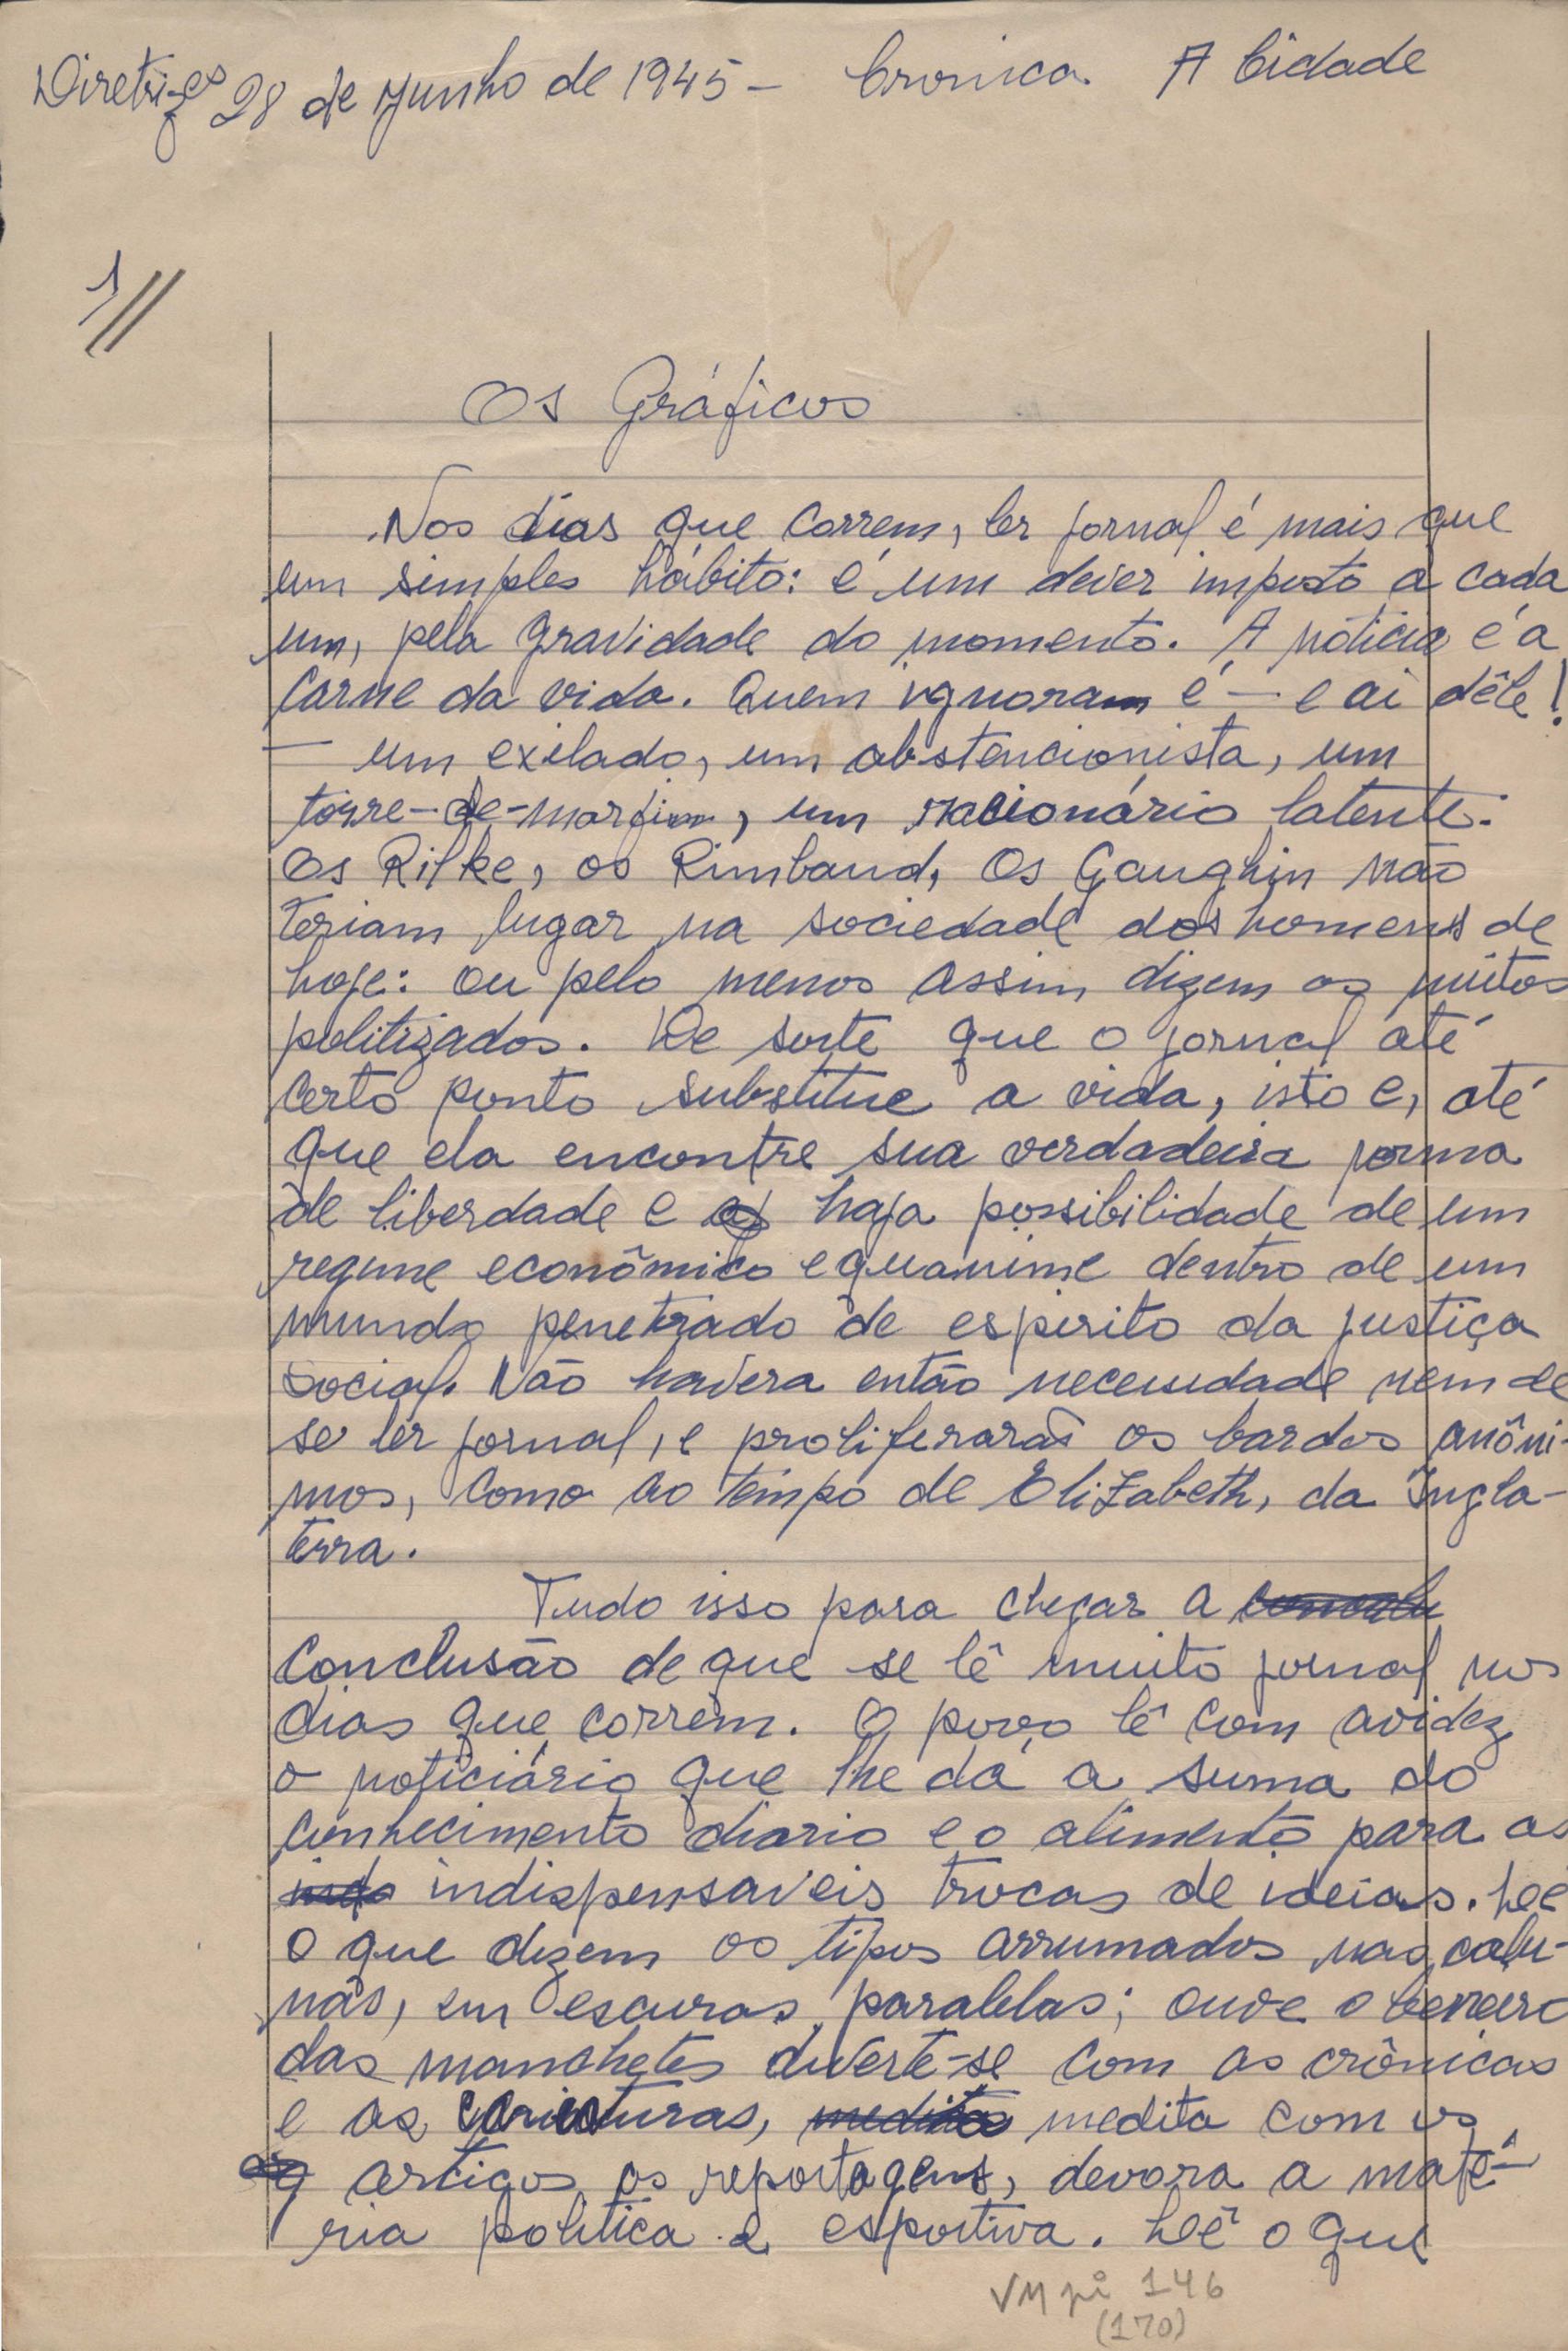 Diretrizes 28 de Junho de 1945 – Cronica. A Cidade
1//
Os Gráficos
Nos dias que correm, ler jornal é mais que
um simples hábito: é um dever imposto a cada
um, pela gravidade do momento. A noticia é a
carne da vida. Quem ignoram é – e ai dêle!
– um exilado, um abstencionista, um
torre-de-marfim, um reacionário latente.
Os Rilke, os Rimbaud, Os Gaughin não
teriam lugar na sociedade dos homens de
hoje: ou pelo menos assim dizem os muitos
politizados. De sorte que o jornal até
certo ponto substitue a vida, isto é, até
que ela encontre sua verdadeira forma
de liberdade e haja possibilidade de um
regime econômico equanime dentro de um
mundo penetrado de espirito da justiça
social. Não havera então necessidade nem de
se ler jornal, e proliferarão os bardos anôni-
mos, como ao tempo de Elizabeth, da Ingla-
terra.
Tudo isso para chegar a
conclusão de que se lê muito jornal nos
dias que correm. O povo lê com avidez
o noticiário que lhe dá a suma do
conhecimento diario e o alimento para as
indispensaveis trocas de ideias. Lee
o que dizem os tipos arrumados nas colu-
nas, em escuras paralelas; ouve o berreiro
das manchetes diverte-se com as crônicas
e as caricaturas, medita com os
artigos os reportagens, devora a maté-
ria politica e esportiva. Leê o que
VM pi 146
(170)